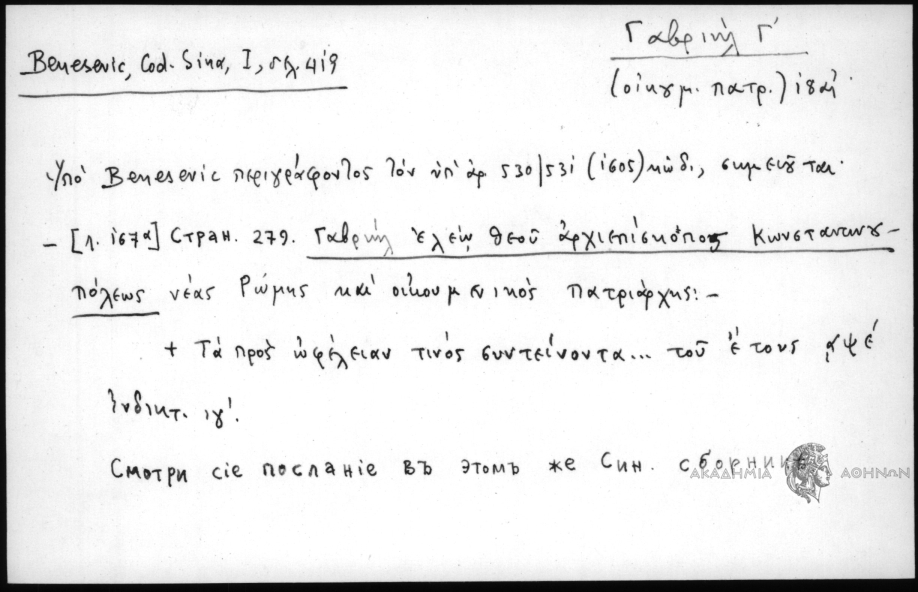 Benesevic, Cod. Sina, I, σελ. 419
Γαβριήλ Γ΄
(οἰκουμ. πατρ.)
Ὑπό Benesevic περιγράφοντος τόν ὑπ' ἀρ 530/531 (ἴσος) κώδ., σημειοῦται·
– [л. 167α] Стран. 279. Γαβριήλ ἐλέῳ θεοῦ ἀρχιεπίσκοπος Κωνσταντινου-
πόλεως νέας Ῥώμης καί οἰκουμενικός πατριάρχης: –
+ Τά πρός ὠφέλειαν τινός συντείνοντα... τοῦ ἔτους ͵αψέ
Ἰνδικτ. ιγ'.
Смотри сіе посланіе въ этомъ же Син. сборникѣ
ΑΚΑΔΗΜΙΑ ΑΘΗΝΩΝ